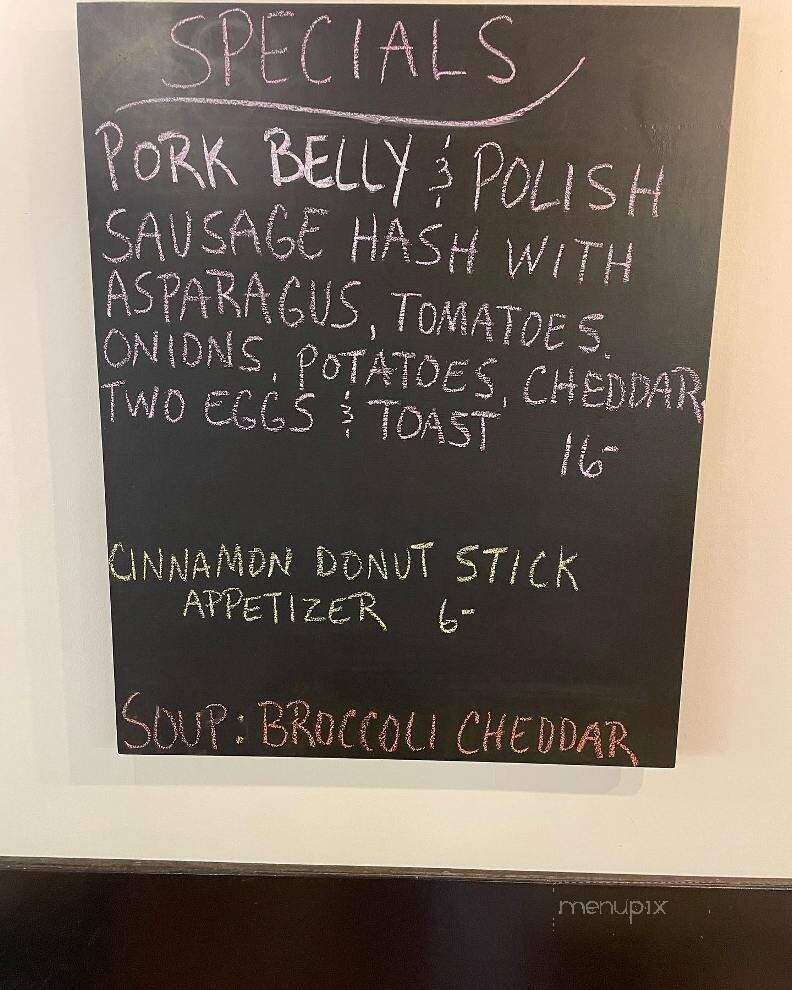 SPECIALS
PORK BELLY & POLISH
SAUSAGE HASH WITH
ASPARAGUS, TOMATOES,
ONIONS, POTATOES, CHEDDAR,
TWO EGGS & TOAST 16-
CINNAMON DONUT STICK
APPETIZER 6-
SOUP: BROCCOLI CHEDDAR
menupix